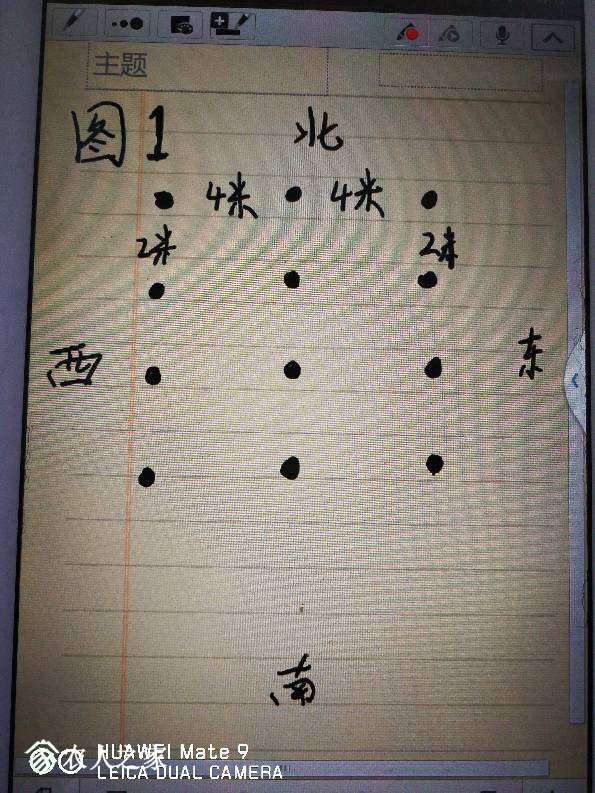 主题
图1 北
4米 4米
2米 2米
西 东
南
农人之家
HUAWEI Mate 9
LEICA DUAL CAMERA